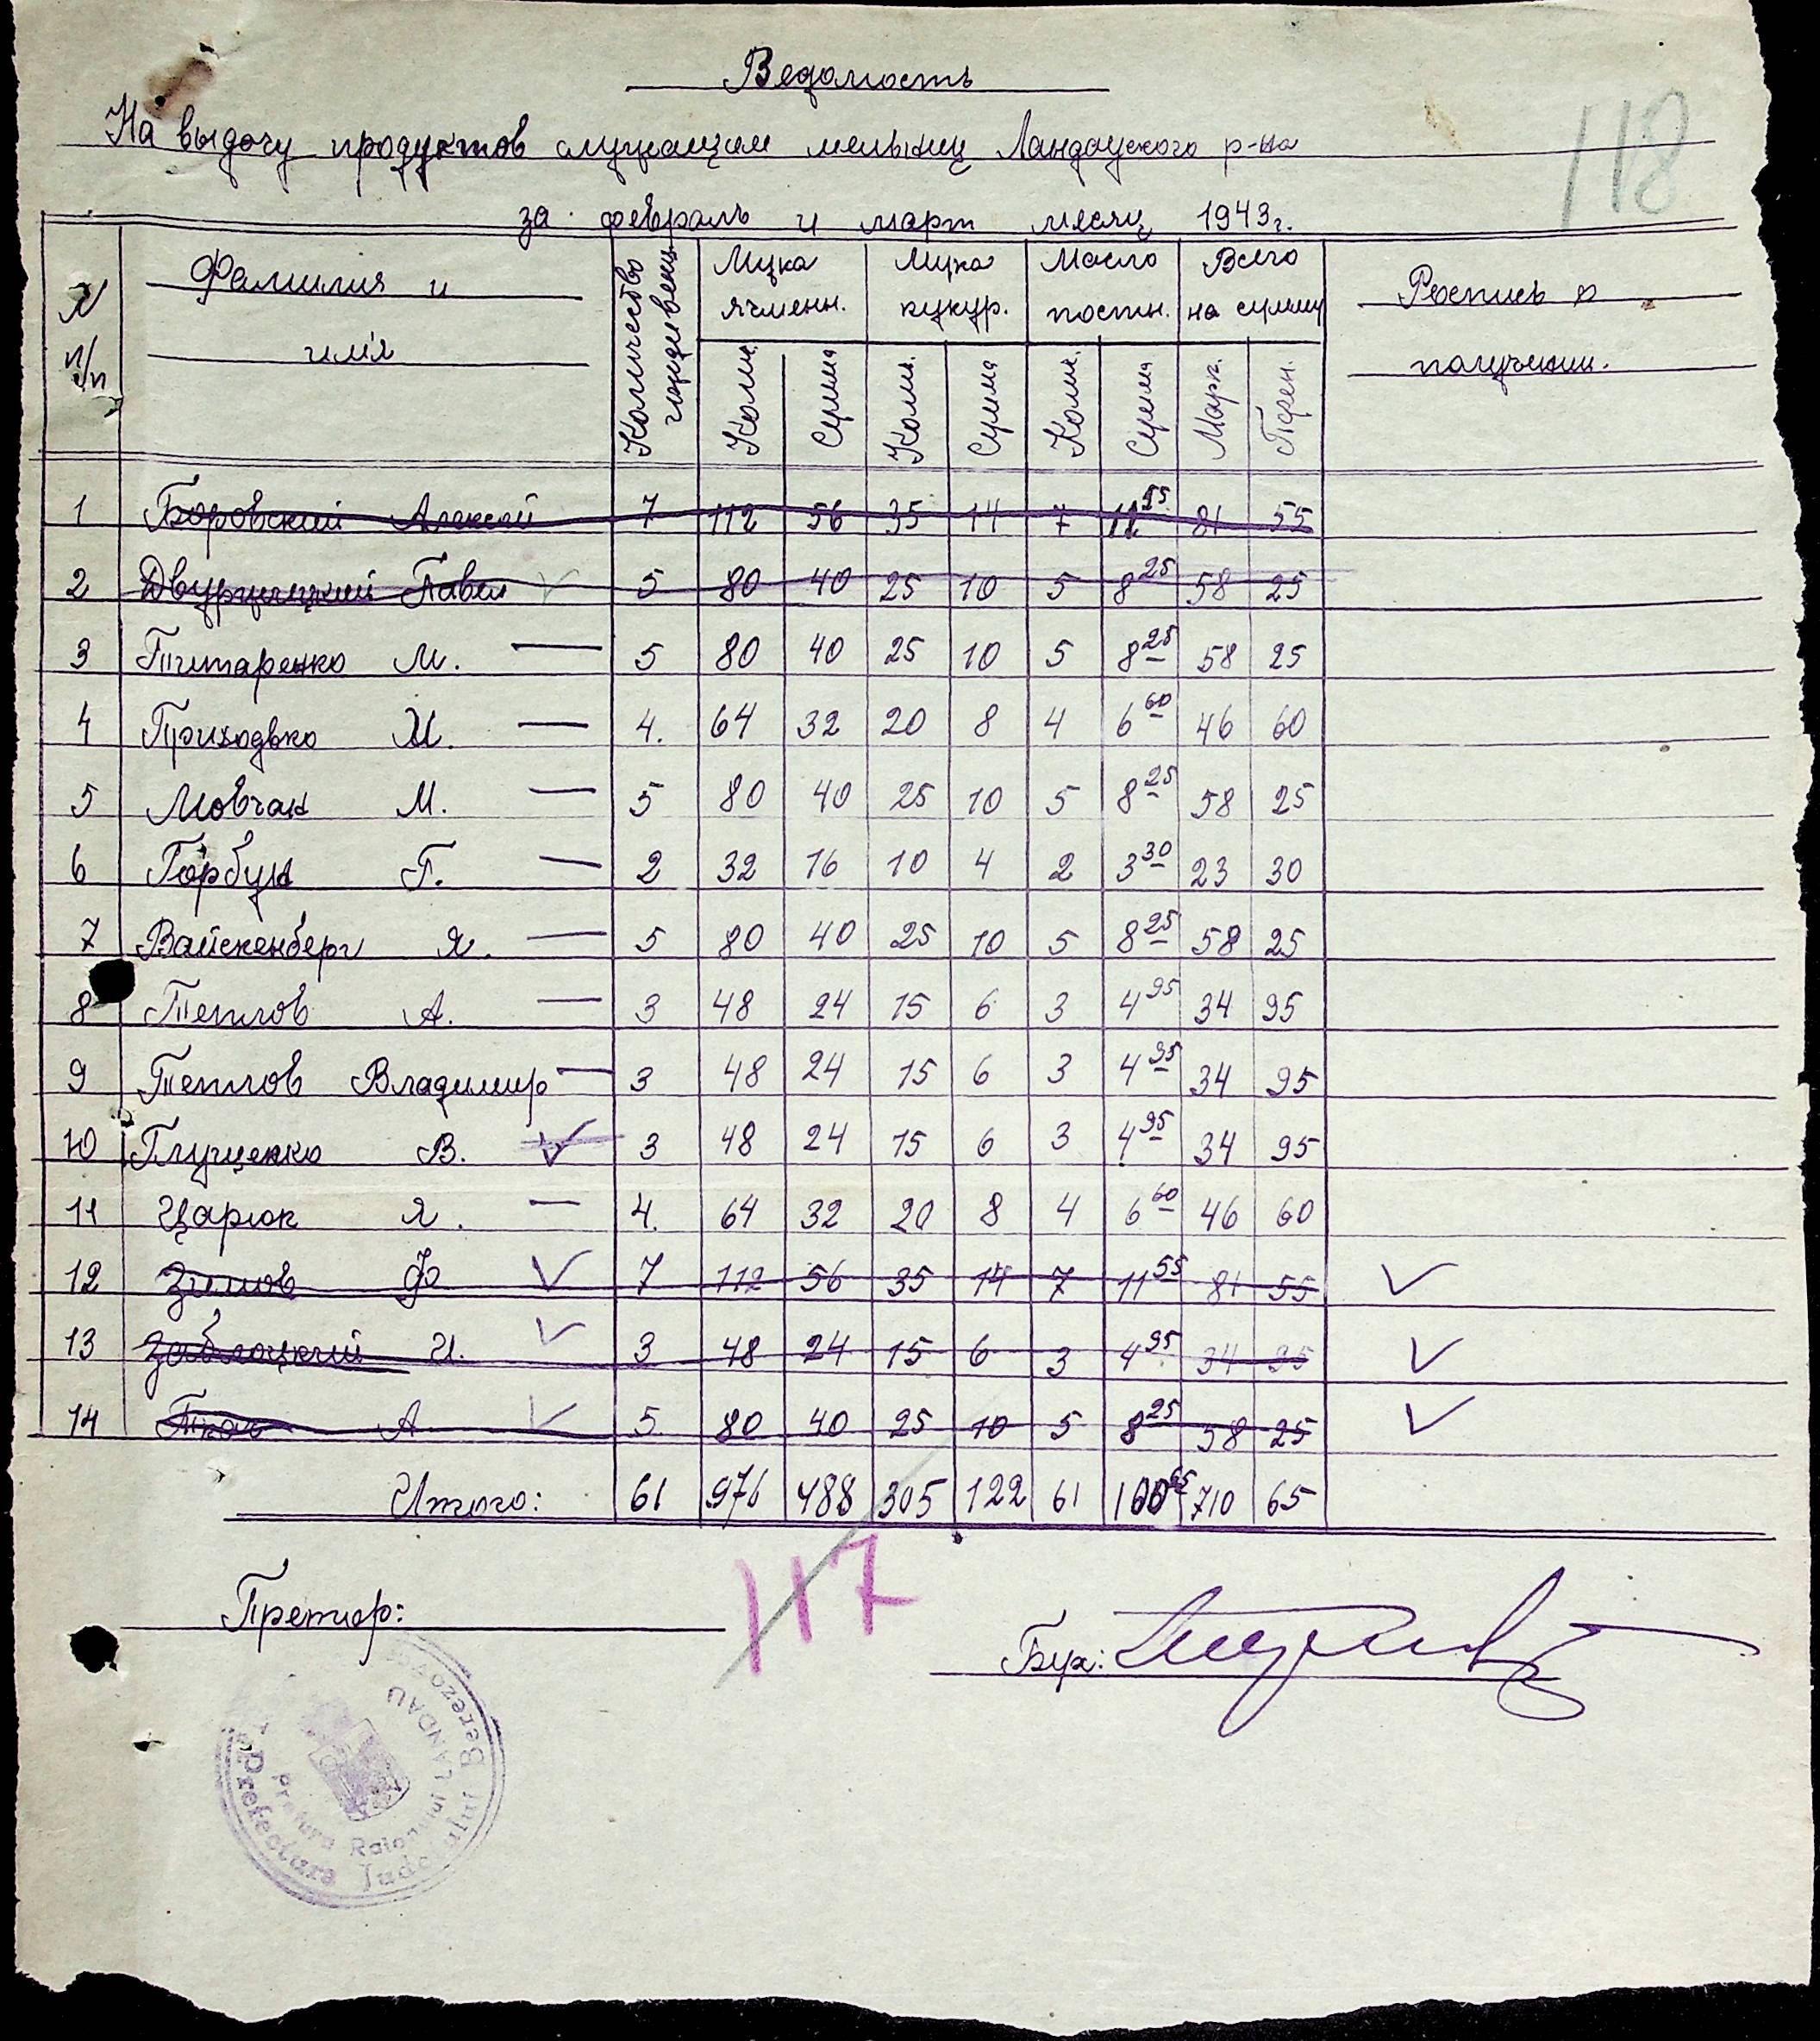 Ведомость
На выдачу продуктов служащим мельниц Ландауского р-на
118
за февраль и март месяц 1943г.
N п/п Фамилия и имя Количество иждивенц. Мука ячменн. Мука кукур. Масло постн. Всего на сумму Роспись в получении.
Колич. Сумма Колич. Сумма Колич. Сумма Марк. Пфен.
1 Боровский Алексей 7 112 56 35 14 7 11 55 81 55
2 Павел 5 80 40 25 10 5 8 25 58 25
3 Титаренко М. — 5 80 40 25 10 5 8 25 58 25
4 Приходько И. — 4. 64 32 20 8 4 6 60 46 60
5 Мовчан М. — 5 80 40 25 10 5 8 25 58 25
6 Горбун Г. — 2 32 16 10 4 2 3 30 23 30
7 Вайскенберг Я. — 5 80 40 25 10 5 8 25 58 25
8 Теплов А. — 3 48 24 15 6 3 4 95 34 95
9 Теплов Владимир — 3 48 24 15 6 3 4 95 34 95
10 Глущенко В. 3 48 24 15 6 3 4 95 34 95
11 Царюк Я. — 4. 64 32 20 8 4 6 60 46 60
12 Зимов Ф 7 112 56 35 14 7 11 55 81 55
13 Заблоцкий И. 3 48 24 15 6 3 4 95 34 95
14 Ткач А 5 80 40 25 10 5 8 25 58 25
Итого: 61 976 488 305 122 61 100 65 710 65
117
Претор:
Бух:
Prefectura Judetului Berezo
Pretura Raionului LANDAU